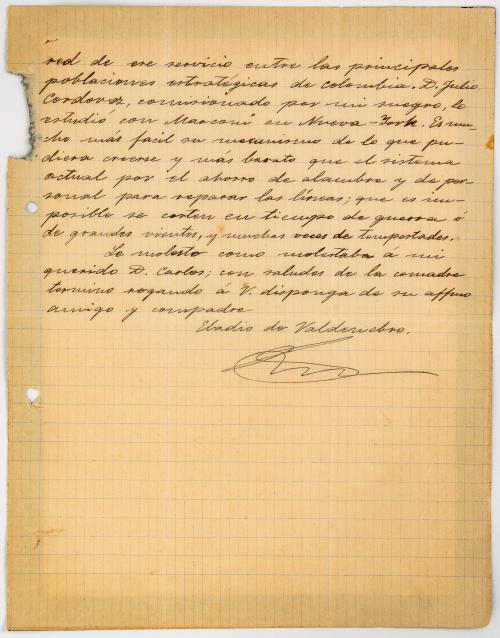 red de ese servicio entre las principales
poblaciones estratégicas de Colombia. D. Julio
Cordovez, comisionado por mi suegro, lo
estudió con Marconi en Nueva-York. Es mu-
cho más facil su mecanismo de lo que pu-
diera creerse y mas barato que el sistema
actual por el ahorro de alambre y de per-
sonal para reparar las líneas; que es im-
posible se corten en tiempo de guerra ó
de grandes vientos, y muchas veces de tempestades.
Le molesto como molestaba á mi
querido D. Carlos; con saludes de la comadre
termino rogando á V. disponga de su affmo
amigo y compadre
Eladio de Valdenebro.